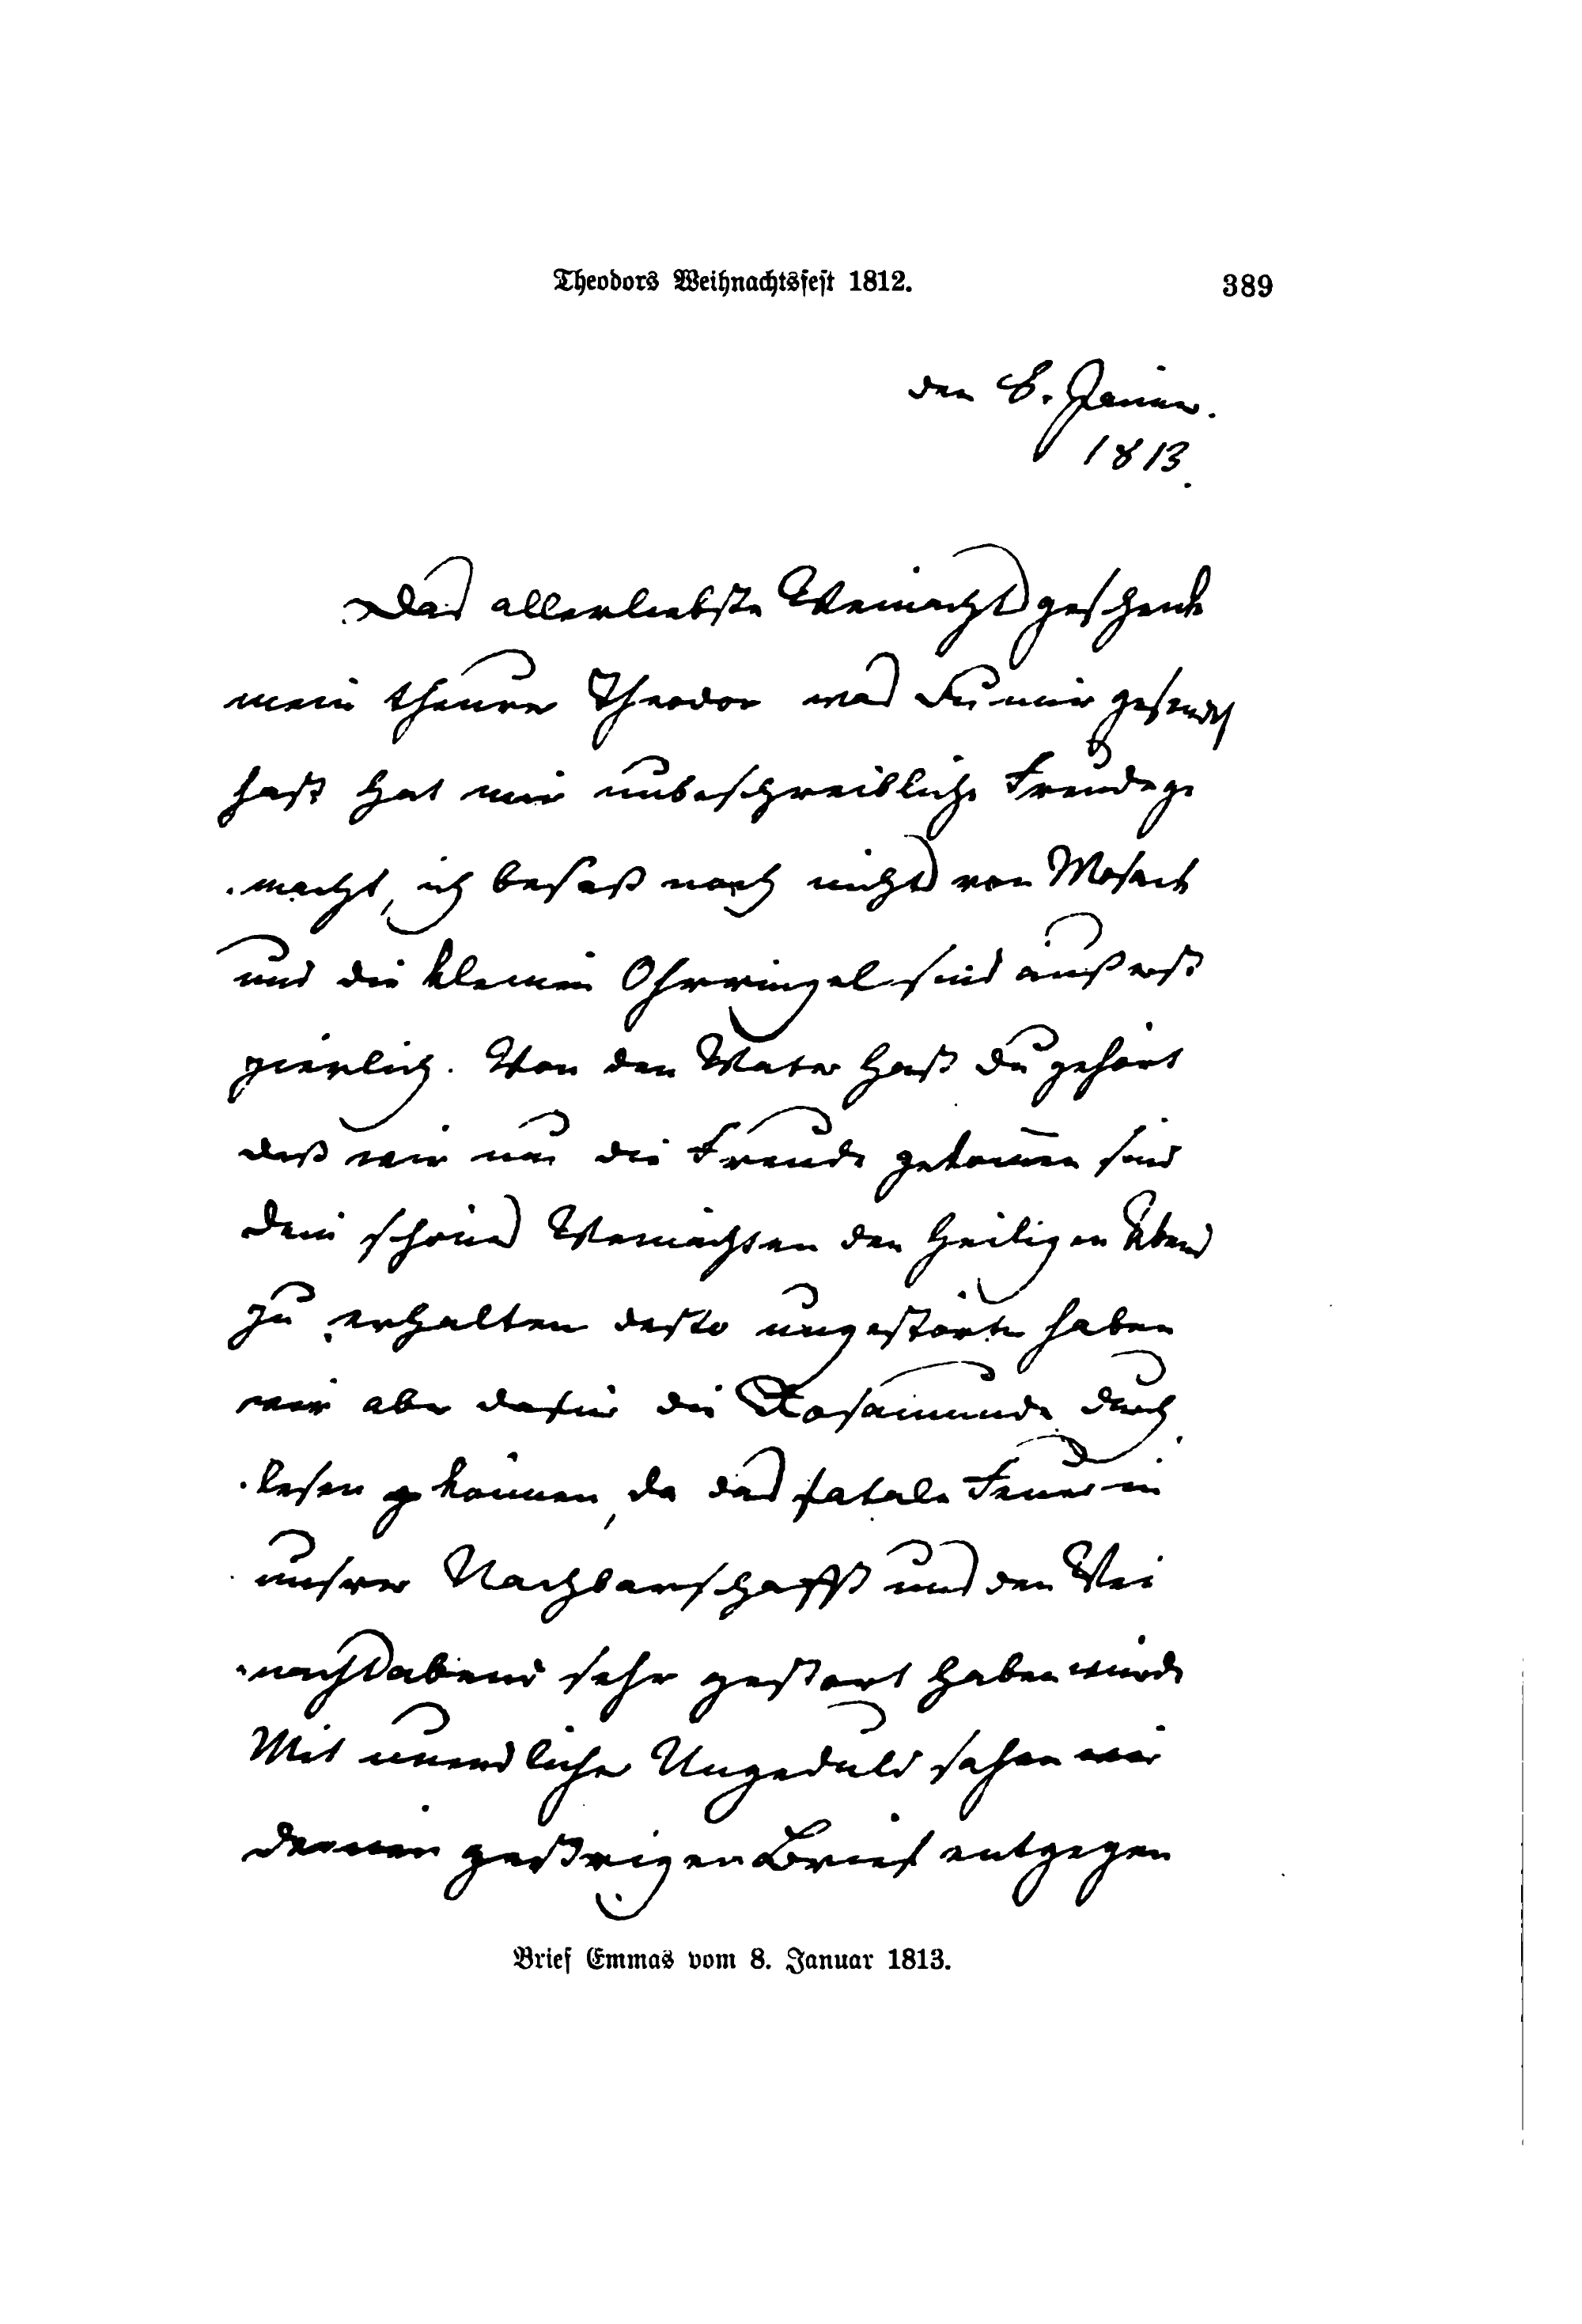 Theodors Weihnachtsfest 1812.
389
den 8. Januar.
1813.
Das allerliebste Weinachtsgeschenk
mein theurer Theodor was du mir gesendet
hast hat mir unbeschreibliche Freude ge
macht, ich besaß noch nichts von Mosaik
und die kleinen Ohrringel sind äußerst
zierlich. Von den Vater hast du gehört
daß wir um die Freude gekom̄en sind
dein schönes Weinachten den heiligen Abend
zu erhalten desto ungestörter haben
wir aber dafür die Rosamunde durch
lesen können, da das fatale Feuer in
unsrer Nachbarschafft uns den Wei
nachtsabend sehr gestört haben würde
Mit unendlicher Ungeduld sahen wir
deinen gestrigen Brief entgegen
Brief Emmas vom 8. Januar 1813.